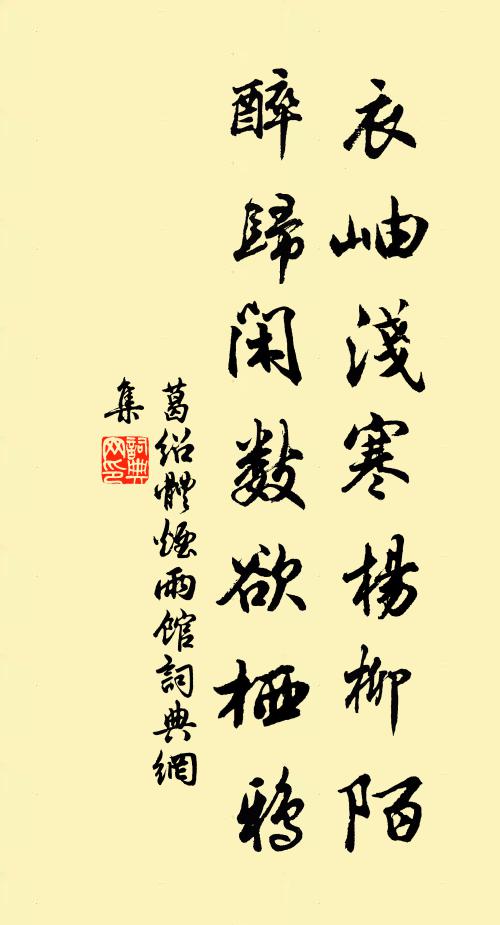 衣岫淺寒楊柳陌
醉歸閑數欲栖鴉
葛紹體煙雨館詞典網
集
詞典網印